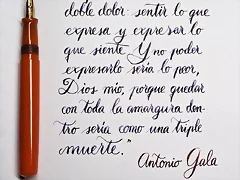 doble dolor: sentir lo que
expresa y expresar lo
que siente. Y no poder
expresarlo sería lo peor,
Dios mío, porque quedar
con toda la amargura den-
tro sería como una triple
muerte."
Antonio Gala